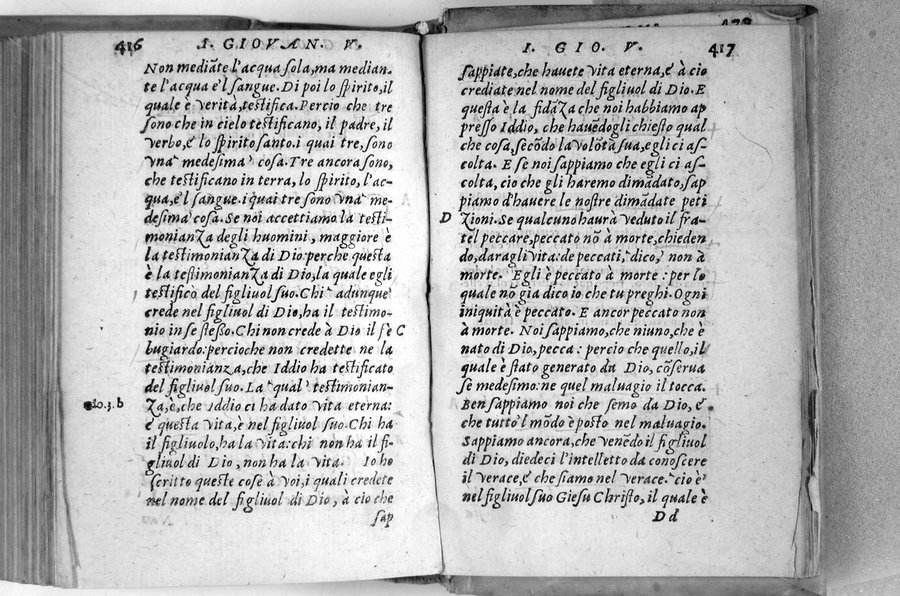 416
I. GIOVAN. V.
Non mediāte l'acqua sola, ma median-
te l'acqua e'l sangue. Di poi lo spirito, il
quale è verità, testifica. Percio che tre
sono che in cielo testificano, il padre, il
verbo, e lo spirito santo. i quai tre, sono
vna medesima cosa. Tre ancora sono,
che testificano in terra, lo spirito, l'ac-
qua, e'l sangue. i quai tre sono vna me-
desima cosa. Se noi accettiamo la testi-
monianza degli huomini, maggiore è
la testimonianza di Dio: perche questa
è la testimonianza di Dio, la quale egli
testificò del figliuol suo. Chi adunque
crede nel figliuol di Dio, ha il testimo-
nio in se stesso. Chi non crede à Dio il fe C
bugiardo: percioche non credette ne la
testimonianza, che Iddio ha testificato
del figliuol suo. La qual testimonian-
za, è, che Iddio ci ha dato vita eterna:
Io. 3. b
e questa vita, è nel figliuol suo. Chi ha
il figliuolo, ha la vita: chi non ha il fi-
gliuol di Dio, non ha la vita. Io ho
scritto queste cose à voi, i quali credete
nel nome del figliuol di Dio, à cio che
sap
I. GIO. V.
417
sappiate, che hauete vita eterna, e à cio
crediate nel nome del figliuol di Dio. E
questa è la fidāza che noi habbiamo ap
presso Iddio, che hauēdogli chiesto qual
che cosa, secōdo la volōta sua, egli ci as-
colta. E se noi sappiamo che egli ci as-
colta, cio che gli haremo dimādato, sap
piamo d'hauere le nostre dimādate peti
D zioni. Se qualcuno haurà veduto il fra-
tel peccare, peccato nō à morte, chieden
do, daragli vita: de peccati, dico, non à
morte. Egli è peccato à morte: per lo
quale nō già dico io che tu preghi. Ogni
iniquità è peccato. E ancor peccato non
à morte. Noi sappiamo, che niuno, che è
nato di Dio, pecca: percio che quello, il
quale è stato generato da Dio, cōserua
se medesimo: ne quel maluagio il tocca.
Ben sappiamo noi che semo da Dio, e
che tutto'l mōdo è posto nel maluagio.
Sappiamo ancora, che venēdo il figliuol
di Dio, diedeci l'intelletto da conoscere
il verace, e che siamo nel verace. cio è
nel figliuol suo Giesu Christo, il quale è
D d